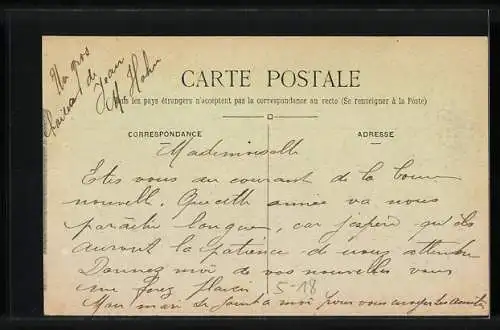 Un gros
baiser de
Jean
M. Hahn
CARTE POSTALE
Tous les pays étrangers n'acceptent pas la correspondance au recto (Se renseigner à la Poste)
CORRESPONDANCE
ADRESSE
Mademoiselle
Etes vous au courant de la bonne
nouvelle. Que cette année va nous
paraître longue, car j'espère qu'ils
auront la patience de nous attendre
Donnez moi de vos nouvelles vous
me ferez plaisir
5-18
Mon mari se joint a moi pour vous envoyer les amitiés